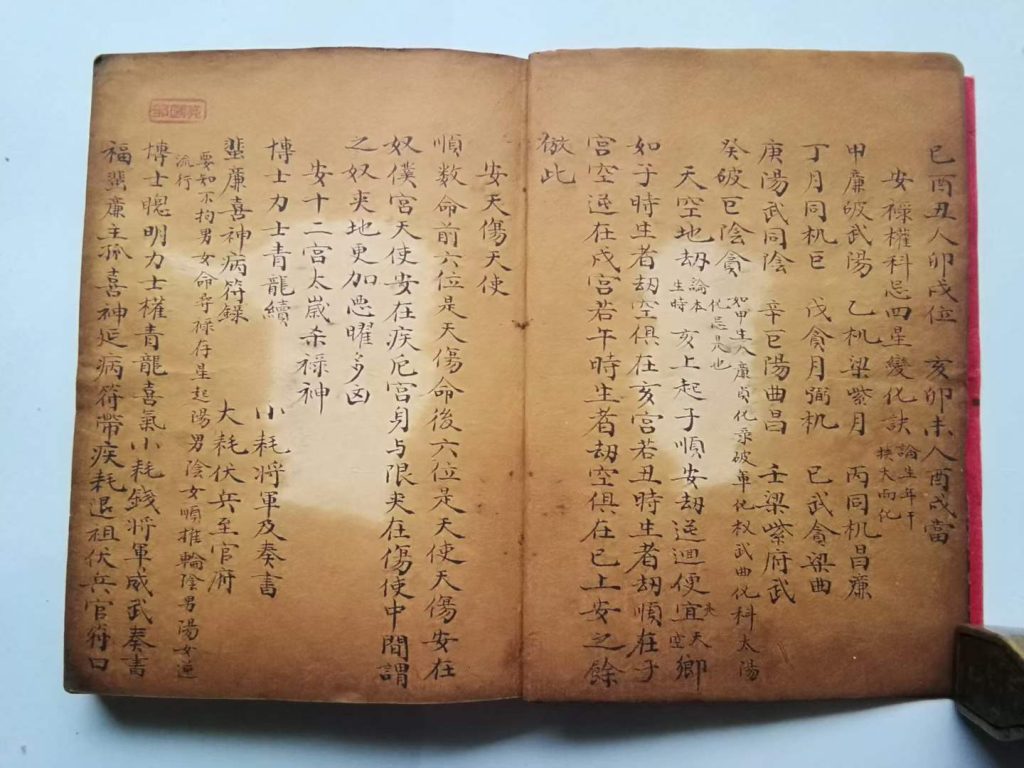 巳酉丑人卯戌位　亥卯未人酉戌當
安祿權科忌四星變化訣 論生年干
換太而化
甲廉破武陽　乙机梁紫月　丙同机昌廉
丁月同机巨　戊貪月弼机　己武貪梁曲
庚陽武同陰　辛巨陽曲昌　壬梁紫府武
癸破巨陰貪 如甲生人廉貞化录破軍化权武曲化科太陽
化忌是也
天空地劫 論本
生時 亥上起子順安劫逆迴便宜天空鄉
如子時生者劫空俱在亥宮若丑時生者劫順在子
宮空逆在戌宮若午時生者劫空俱在巳上安之餘
倣此
安天傷天使
順数命前六位是天傷命後六位是天使天傷安在
奴僕宮天使安在疾厄宮身与限夹在傷使中間謂
之奴夹地更加惡曜多凶
安十二宮太歲杀祿神
博士力士青龍續　小耗將軍及奏書
蜚廉喜神病符錄　大耗伏兵至官府
要知不拘男女命尋禄存星起陽男陰女順推輪陰男陽女逆
流行
博士聰明力士權青龍喜氣小耗錢將軍威武奏書
福蜚廉主孤喜神延病符帶疾耗退祖伏兵官符口